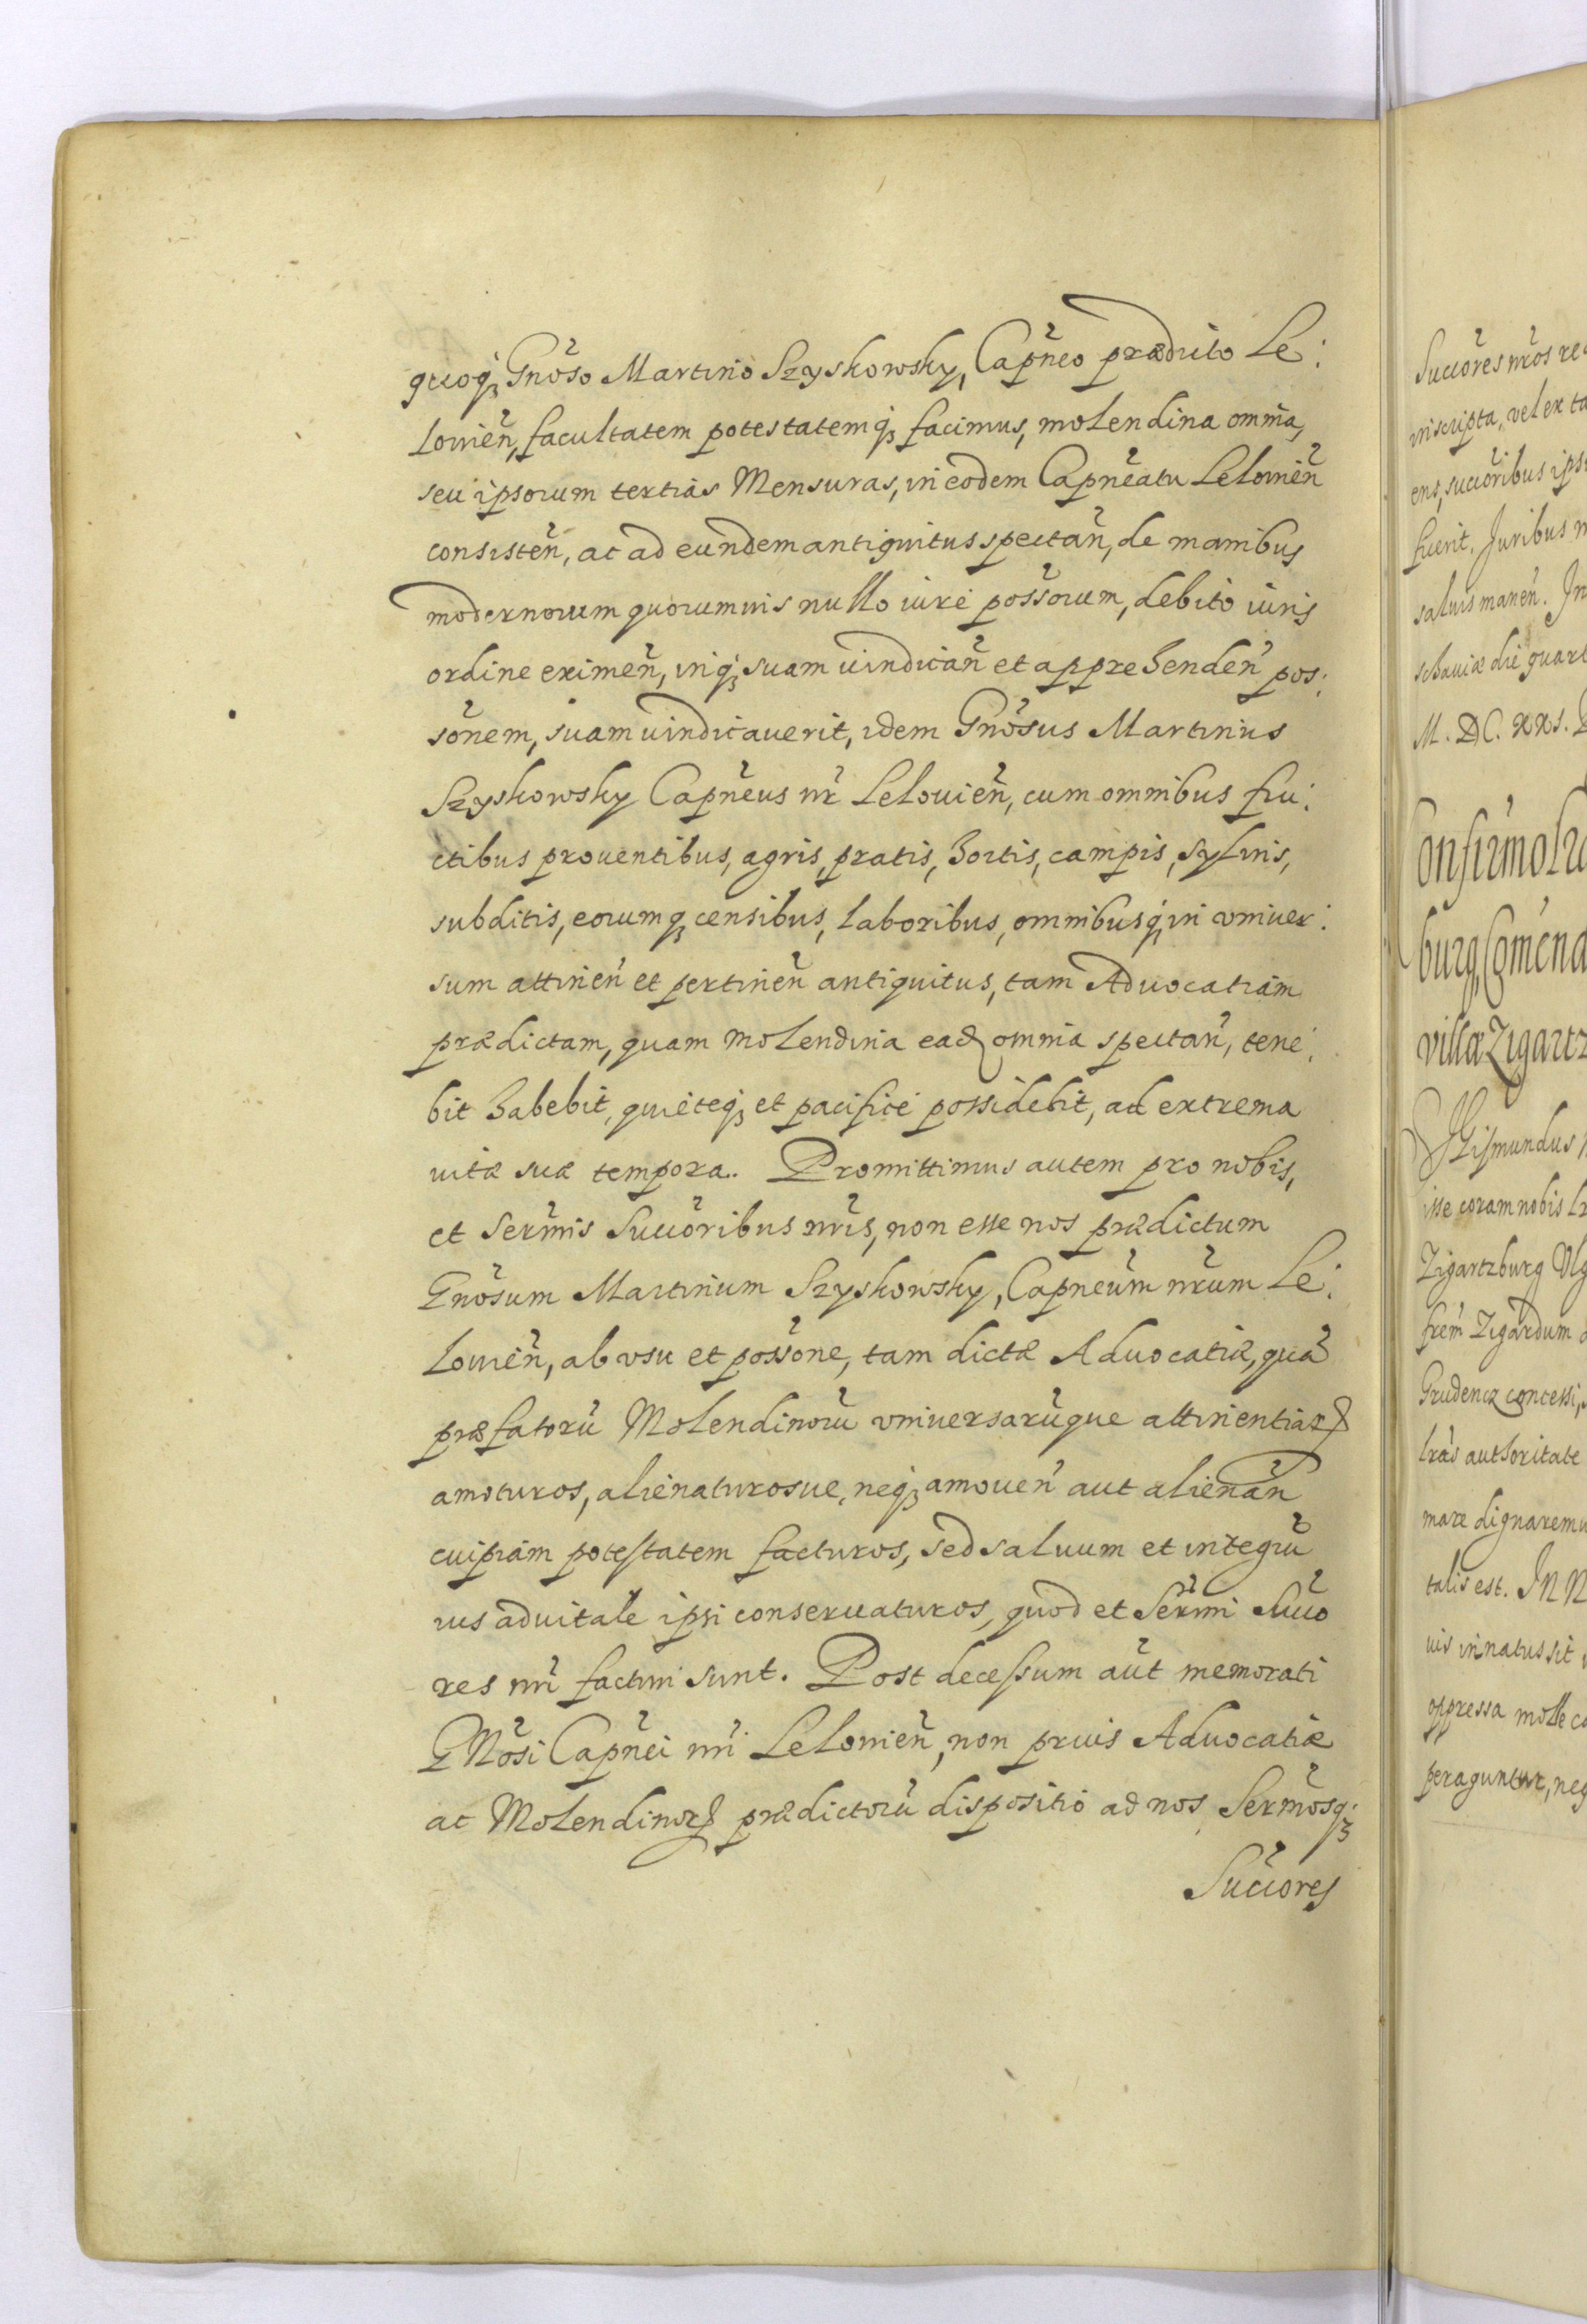 quoq₃ Gnõso Martino Szyskowsky, Capñeo prædicto Le:
lovień, facultatem potestatemq₃ facimus, molendina omnia,
seu ipsorum tertias Mensuras, in eodem Capñeatu Lelovień
consisteñ, ac ad eundem antiquitus spectań, de manibus
modernorum quorumvis nullo iure poss̃orum, debito iuris
ordine eximeñ, inq₃ suam vindicań et apprehendeń pos:
sõnem, suam vindicauerit, idem Gnõsus Martinus
Szyskowsky Capñeus ñr Lelouień, cum omnibus fru:
ctibus prouentibus, agris, pratis, hortis, campis, syluis,
subditis, eorumq₃ censibus, laboribus, omnibusq₃ in vniuer:
sum attineń et pertineń antiquitus, tam Aduocatiam
prædictam, quam molendina eadꝫ omnia spectań, tene:
bit habebit, quieteq₃ et pacifice possidebit, ad extrema
vitæ suæ tempora. Promittimus autem pro nobis,
et Serm̃is Succõribus ñris, non esse nos prædictum
Gnõsum Martinum Szyskowsky, Capñeum ñrum Le:
lovień, ab vsu et possõne, tam dictæ Aduocatiæ, quã
præfatorũ Molendinorũ vniuersarũque attinentiarꝝ
amoturos, alienaturosue, neq₃ amoueń aut alienań
cuipiam potestatem facturos, sed saluum et integrũ
ius aduitale ipsi conseruaturos, quod et Serm̃i Succõ
res ñri facturi sunt. Post decessum aũt memorati
GNõsi Capñei ñri Lelovień, non prius Aduocatiæ
ac Molendinorꝝ prædictorũ dispositio ad nos Serm̃osq₃
Succõres
Succõres ñros re
inscripta, vel ex ta
ens, succõribus ips
fuerit. Juribus
saluis maneń. In
schauiæ die quart
M. DC. XXI.
Confirmo
burg, Comenda
villæ Zigartz
Sigismundus
isse coram nobis
Zigartzburg
frem Zigardum
Grudencz concessi,
lrãs authoritate
mare dignaremu
talis est. IN N
uis innatus sit
oppressa mole
peraguntur, neq